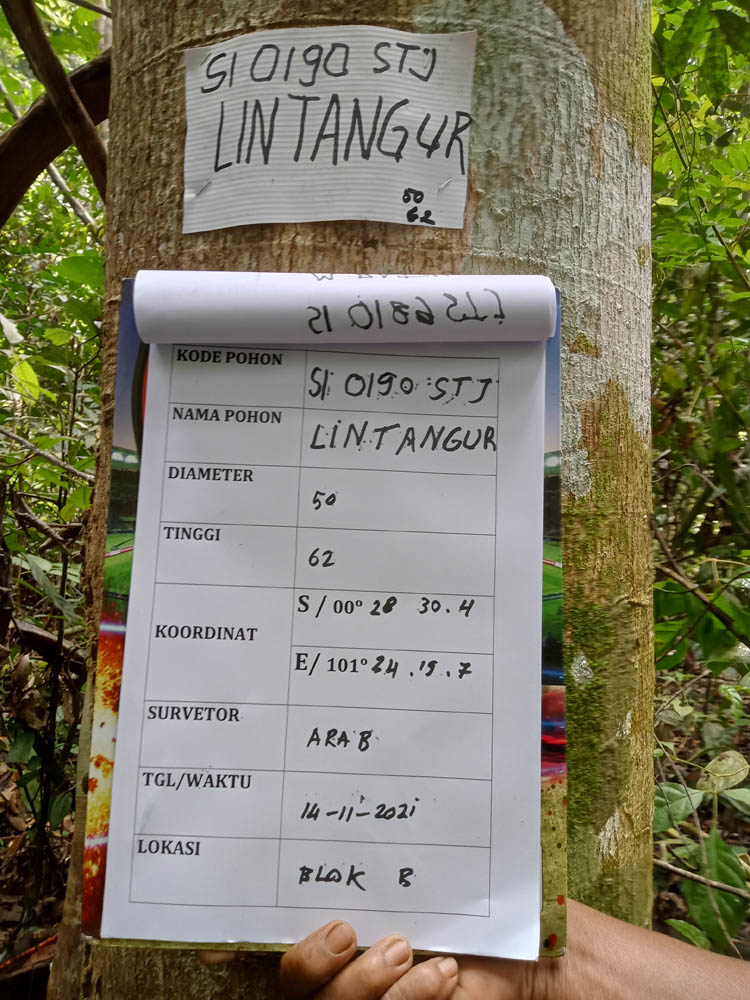 SI 0190 STJ
LINTANGUR
50
62
KODE POHON SI 0190 STJ
NAMA POHON LINTANGUR
DIAMETER 50
TINGGI 62
KOORDINAT
S / 00° 28 30.4
E/ 101° 24 .19 .7
SURVETOR ARAB
TGL/WAKTU 14-11-2021
LOKASI BLOK B